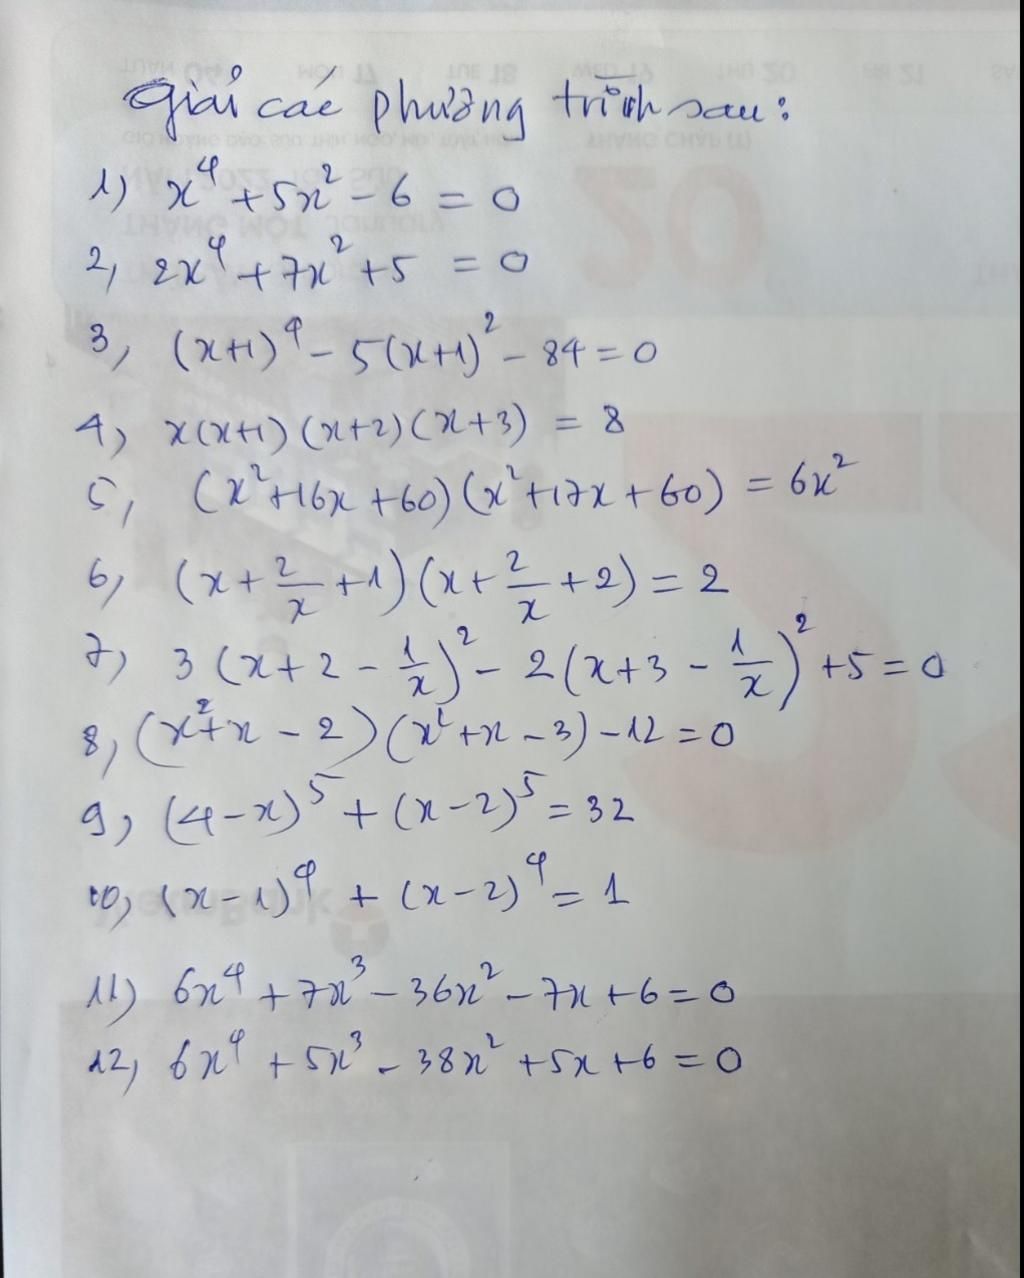 Giải các phương trình sau:
1) x⁴ + 5x² - 6 = 0
2, 2x⁴ + 7x² + 5 = 0
3, (x+1)⁴ - 5(x+1)² - 84 = 0
4, x(x+1)(x+2)(x+3) = 8
5, (x² + 16x + 60)(x² + 17x + 60) = 6x²
6, (x + 2/x + 1)(x + 2/x + 2) = 2
7, 3(x + 2 - 1/x)² - 2(x + 3 - 1/x)² + 5 = 0
8, (x² + x - 2)(x² + x - 3) - 12 = 0
9, (4-x)⁵ + (x-2)⁵ = 32
10, (x-1)⁴ + (x-2)⁴ = 1
11) 6x⁴ + 7x³ - 36x² - 7x + 6 = 0
12, 6x⁴ + 5x³ - 38x² + 5x + 6 = 0